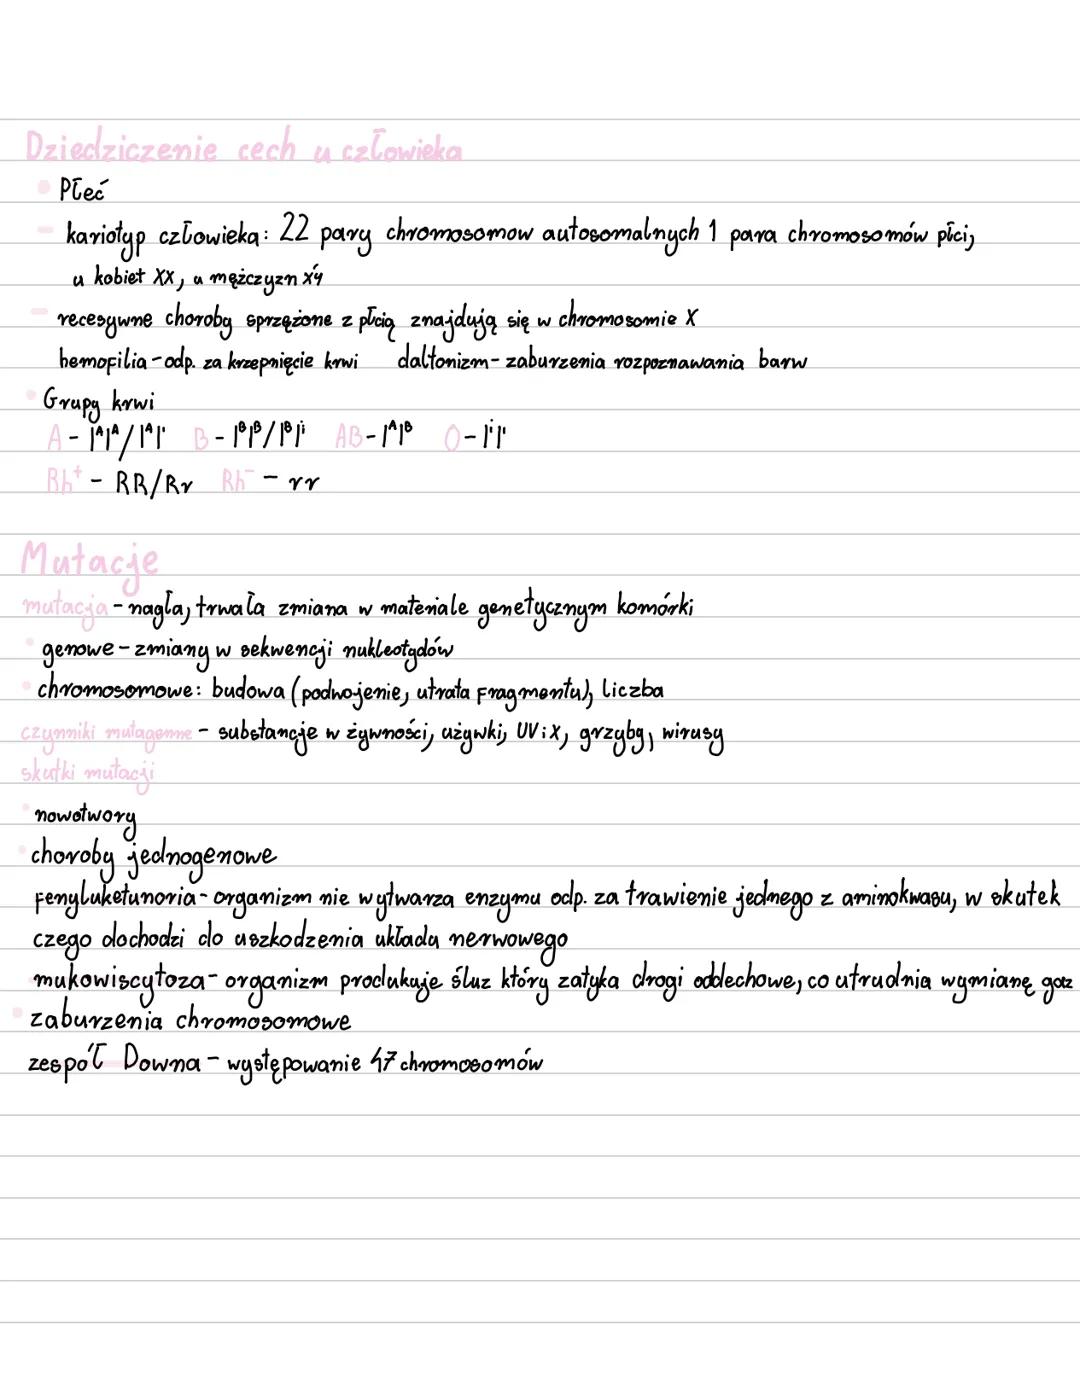 Dziedziczenie cech u człowieka
• Płeć
- kariotyp człowieka: 22 pary chromosomow autosomalnych 1 para chromosomów płci,
u kobiet XX, u mężczyzn xy
- recesywne choroby sprzężone z płcią znajdują się w chromosomie X
hemofilia - odp. za krzepnięcie krwi daltonizm - zaburzenia rozpoznawania barw
• Grupy krwi
A - IᴬIᴬ/IᴬIⁱ B - IᴮIᴮ/IᴮIⁱ AB - IᴬIᴮ O - IⁱIⁱ
Rh⁺ - RR/Rr Rh⁻ - rr
Mutacje
mutacja - nagła, trwała zmiana w materiale genetycznym komórki
• genowe - zmiany w sekwencji nukleotydów
• chromosomowe: budowa (podwojenie, utrata fragmentu), liczba
czynniki mutagenne - substancje w żywności, używki, UV i X, grzyby, wirusy
skutki mutacji
• nowotwory
• choroby jednogenowe
fenyluketunoria - organizm nie wytwarza enzymu odp. za trawienie jednego z aminokwasu, w skutek
czego dochodzi do uszkodzenia układu nerwowego
mukowiscytoza - organizm produkuje śluz który zatyka drogi oddechowe, co utrudnia wymianę gaz
• zaburzenia chromosomowe
zespół Downa - występowanie 47 chromosomów